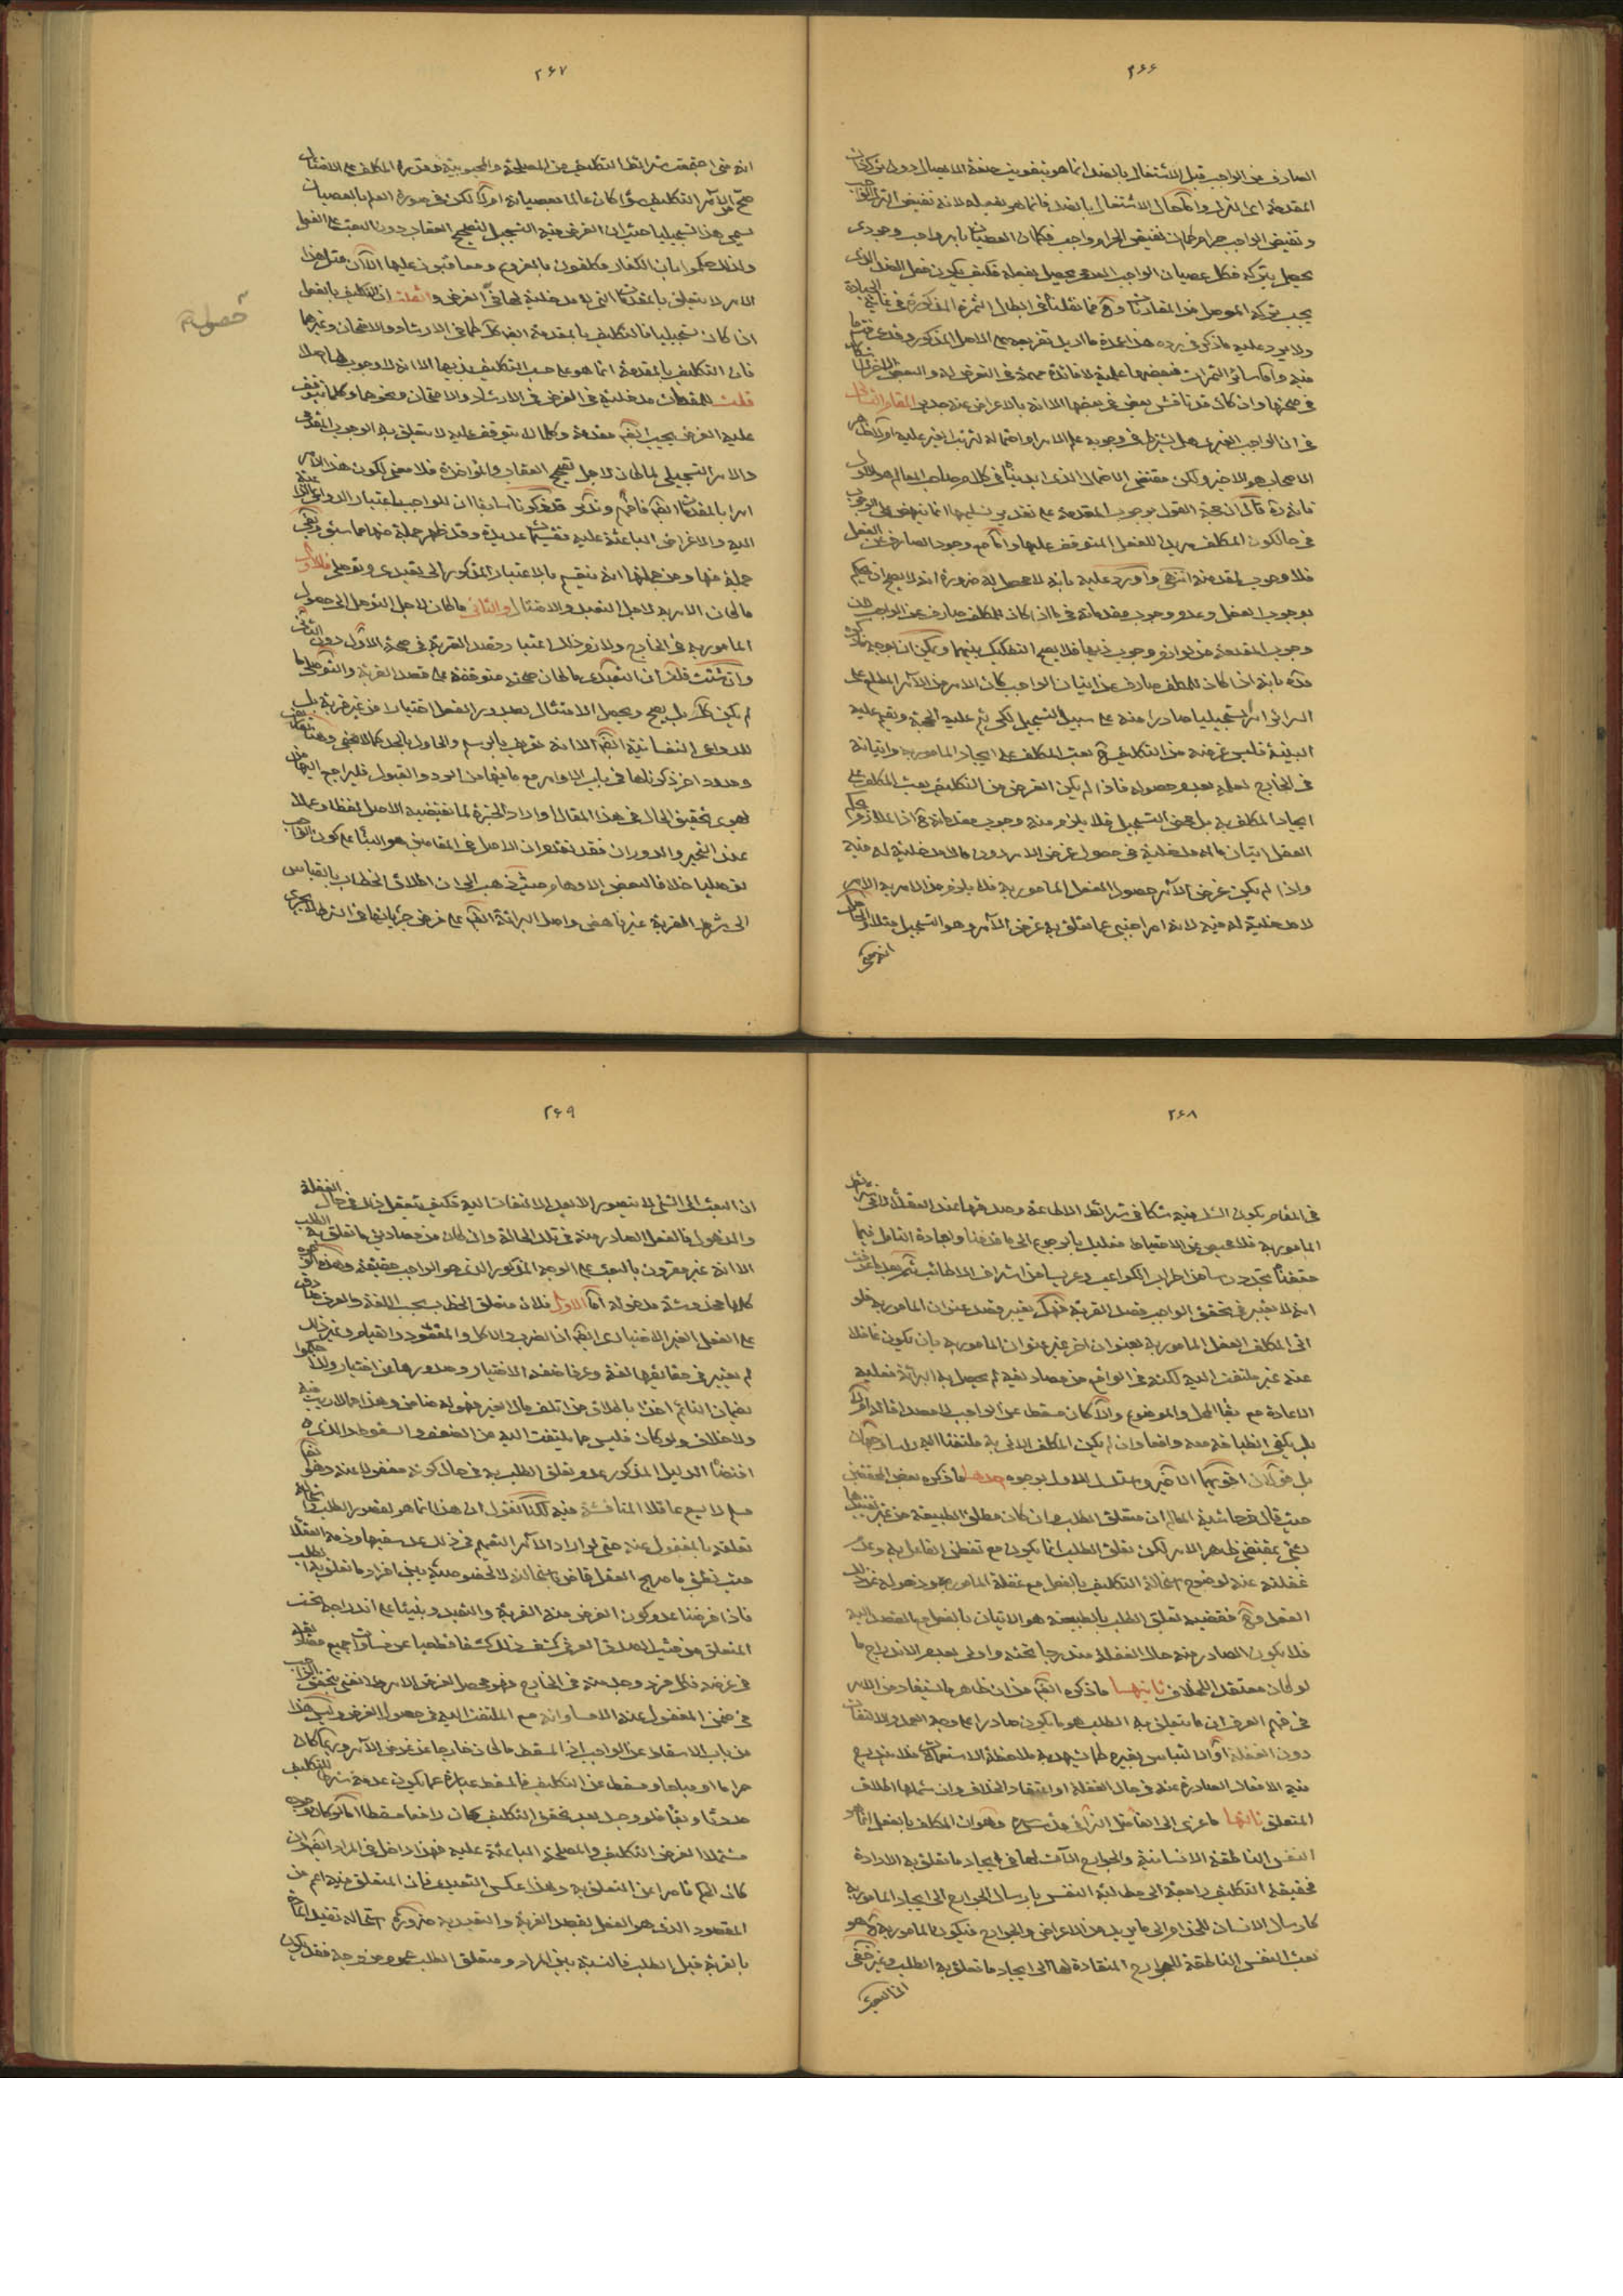 ٢۶۶
الصارف عن الواجب قبل الاشتغال بالضد انما هو بتفويت صفة الايصال دون ترك ذات
المقدمة اعنى الترك واما حال الاشتغال بالضد فانما هو بفعله لانه نقيض الترك الواجب
ونقيض الواجب حرام كما ان نقيض الحرام واجب فكما ان العصيان
يحصل بتركه فكل عصيان الواجب العدمى يحصل بفعله فكيف يكون فعل الضد الذى
يجب تركه الموصل من المقارنات
ولا يرد عليه ما ذكر فى رده هذا عمدة ما اريد تفريعه على الاصل المذكور وقد عرفت ما
فيه واما سائر الثمرات فبعضها علمية لا فائدة مهمة فى التعرض له والبعض الاخر
فى صحتها وان كان قد ناقش بعض فى بعضها الا انه بالاعراض عنه جدير المقام الثالث
فى ان الواجب الغيرى هل يشترط فى وجوبه علم الامر او احتماله لترتب الغير عليه او لا ظاهر
الاصحاب هو الاخير ولكن مقتضى الاحتمال الذى ابديناه فى كلام صاحب المعالم هو الاول
فانه قال ان حجة القول بوجوب المقدمة على تقدير تسليمها انما تنهض على الوجوب
فى حال كون المكلف مريدا للفعل المتوقف عليها واما مع وجود الصارف عن الفعل
فلا وجوب لمقدمته انتهى واورد عليه بانه لا محصل له ضرورة انه لا يصح ان يحكم
بوجوب الفعل وعدم وجوب مقدماته فى ما اذا كان للمكلف صارف عن الواجب لان
وجوب المقدمة من لوازم وجوب ذيها فلا يصح التفكيك بينهما ويمكن ان يوجه ما ذكره
قده بانه اذا كان للمكلف صارف عن اتيان الواجب كان الامر من الآمر المطلع على
السرائر امرا تسجيليا صادرا منه على سبيل التسجيل لكى يتم عليه الحجة ويقيم عليه
البينة فليس غرضه من التكليف ح بعث المكلف على ايجاد المامور به واتيانه
فى الخارج لعلمه بعدم حصوله فاذا لم يكن الغرض من التكليف بعث المكلف على
ايجاد المكلف به بل محض التسجيل فلا يلزم منه وجوب مقدماته ح اذ الملازم بحكم
العقل اتيان ما له مدخلية فى حصول غرض الامر دون ما لا مدخلية له فيه
واذا لم يكن غرض الآمر حصول الفعل المامور به فلا يلزم من الامر به الامر
لا مدخلية له فيه لانه امر اجنبى عما تعلق به غرض الآمر وهو التسجيل مثلا والحاصل
انه متى
٢۶٧
انه متى اجتمعت شرائط التكليف من المصلحة والمحبوبية وقدرة المكلف على الامتثال
صح للآمر التكليف سواء كان عالما بعصيانه او لا لكن فى صورة العلم بالعصيان
يسمى هذا تسجيليا حيث ان الغرض منه التسجيل لتصحيح العقاب دون البعث على الفعل
ولذلك حكموا بان الكفار مكلفون بالفروع ومعاقبون عليها الا ان مثل هذا
الامر لا يتعلق بالمقدمات التى لا مدخلية لها فى الغرض وان قلت ان التكليف بالفعل
اذا كان تسجيليا فالتكليف بالمقدمة ايضا كك كما فى الارشاد والامتحان وغيرهما
فان التكليف بالمقدمة انما هو على حسب التكليف بذيها الا انه لا وجوب لها اصلا
قلت للمقدمات مدخلية فى الغرض فى الارشاد والامتحان ونحوهما وكلما يتوقف
عليه الغرض يجب ايضا مقدمة وكلما لا يتوقف عليه لا يتعلق به الوجوب المقدمى
والامر التسجيلى لما كان لاجل تصحيح العقاب والمؤاخذة فلا معنى لكون هذا الامر
امرا بالمقدمات ايضا فافهم وتدبر قد ذكرنا سابقا ان للواجب باعتبار الدواعى
اليه والاغراض الباعثة عليه تقسيمات عديدة وقد ظهر جملة منها مما سبق وبقى
جملة منها ومن جملتها انه ينقسم بالاعتبار المذكور الى تعبدى وتوصلى فالاول
ما كان الامر به لاجل التعبد والامتثال والثانى ما كان لاجل التوصل الى حصول
المامور به فى الخارج ولازم ذلك اعتبار قصد القربة فى صحة الاول دون الثانى
وان شئت قلت ان التعبدى ما كان صحته متوقفة على قصد القربة والتوصلى ما
لم يكن كك بل يصح ويحصل الامتثال بصدور الفعل اختيارا من غير قربة بل
للدواعى النفسانية ايضا الا انه تعريف بالرسم والحاول بالحد كما لا يخفى وهنا تعريفات
وحدود اخر ذكروها فى باب الاوامر مع ما فيها من الرد والقبول فليراجع اليها من
يهوى تحقيق الحال فى هذا المقال واراد الخبرة لما تقتضيه الاصل لفظا وعملا
عند التحير والدوران فقد تقدم ان الاصل فى المقامين هو البناء على كون الواجب
توصليا خلافا لبعض الاوهام حيث ذهب الى ان اطلاق الخطاب بالقياس
الى شرط القربة غير ناهض واصل البرائة ايضا على فرض جريانها فى الشرط لا تجرى
حصوله
٢۶٨
فى المقام لكون الشك فيه شكا فى شرائط الاطاعة وصدقها عند العقلاء
المامور به فلا محيص عن الاحتياط فعليك بالرجوع الى ما قدمنا واجادة التامل فيما
حققنا
انه لا يعتبر فى تحقق الواجب قصد القربة فهل يعتبر قصد عنوان المامور به فلو
اتى المكلف الفعل المامور به بعنوان اخر غير عنوان المامور به بان يكون غافلا
عنه غير ملتفت اليه لكنه فى الواقع من مصاديقه لم يحصل به البرائة فعليه
الاعادة مع بقاء المحل والموضوع والا كان مسقطا عن الواجب لا مصداقا له او لا
بل يكفى انطباقه معه واقعا وان لم يكن المكلف الاتى به ملتفتا اليه راسا وجهان
بل قولان اقويهما الاخير واستدل للاول بوجوه احدها ما ذكره بعض المحققين
حيث قال فى حاشية المعالم ان متعلق الطلب وان كان مطلق الطبيعة من غير تقييدها
بشئ بمقتضى ظاهر الامر لكن تعلق الطلب انما يكون مع تفطن الفاعل به وعدم
غفلته عنه لوضوح استحالة التكليف بالفعل مع غفلة المامور وذهوله عن ذلك
الفعل وح فقضية تعلق الطلب بالطبيعة هو الاتيان بالفعل مع القصد اليه
فلا يكون الصادر منه حال الغفلة مندرجا تحته واولى بعدم الاندراج ما
لو كان معتقد الخلاف ثانيها ما ذكره ايضا من ان ظاهر ما يستفاد من الامر
فى فهم العرف ان ما يتعلق به الطلب هو ما يكون صادرا على وجه العمد والالتفات
دون الغفلة او الالتباس بغيره كما يشهد به ملاحظة الاستعمالات فلا يندرج
فيه الافعال الصادرة عنه فى حال الغفلة او اعتقاد الخلاف وان شملها اطلاق
المتعلق ثالثها ما عزى الى الفاضل النراقى قدس سره وهو ان المكلف بالفعل انما هو
النفس الناطقة الانسانية والجوارح الآت لها فى ايجاد ما تعلق به الارادة
فحقيقة التكليف راجعة الى مطالبة النفس بارسال الجوارح الى ايجاد المامور به
كارسال الانسان للخدام الى ما يريد من الاغراض والحوائج فيكون المامور به ح هو
بعث النفس الناطقة للجوارح المنقادة لها الى ايجاد ما تعلق به الطلب وغير خفى
ان البعث
٢۶٩
ان البعث الى الشئ لا يتصور الا بعد الالتفات اليه فكيف يتعقل ذلك فى حال الغفلة
والذهول فالفعل الصادر منه فى تلك الحالة وان كان من مصاديق ما تعلق به الطلب
الا انه غير مقرون بالبعث على الوجه المذكور الذى هو الواجب حقيقة وهذه الوجوه
كلها مخدوشة مدخولة اما الاول فلان متعلق الخطاب بحسب اللغة والعرف صادق
على الفعل الغير الاختيارى ايضا اذ الضرب والاكل والقعود والقيام وغير ذلك
لم يعتبر فى حقائقها لغة وعرفا صفة الاختيار وصدورها عن اختيار ولذا حكموا
بضمان النائم اخذا باطلاق من اتلف مال الغير فهو له ضامن وهذا مما لا ريب فيه
ولا خلاف ولو كان فليس مما يلتفت اليه من الضعف والسقوط والذى
اقتضاه الدليل المذكور عدم تعلق الطلب به فى حال كونه مغفولا عنه وهو كما
مسلم لا يسع عاقلا المناقشة فيه لكنا نقول ان هذا انما هو لقصور الطلب واستحالة
تعلقه بالمغفول عنه حتى لو اراد الآمر التعميم فى ذلك عد سفيها وذمه العقلاء
حيث نطق ما صريح العقل قاض باستحالته لا لخصوصية فى بعض افراد ما تعلق به الطلب
فاذا فرضنا عدم كون الغرض منه القربة والتعبد وبنينا على اندراجه تحت
المتعلق من حيث الصدق العرفى كشف ذلك كشفا قطعيا عن مساوات جميع مصاديقه
فى غرضه فكل فرد وجد منه فى الخارج فهو محصل لغرض الامر
فى ضمن المغفول عنه الا مساواته مع الملتفت اليه فى حصول الغرض وليس هذا
من باب الاسقاط عن الواجب اذ المسقط ما كان خارجا عن غرض الآمر وربما كان
حراما او مباحا ومسقط عن التكليف فالمسقط عبارة عما يكون عدمه شرطا للتكليف
حدوثا وبقاء فلو وجد بعد تحقق التكليف كان رافعا مسقطا اما لو كان وجوده
مشتملا لغرض التكليف والمصلحة الباعثة عليه فهذا داخل فى المراد ايضا وان
كان الحكم قاصرا عن التعلق به وهذا عكس التعبدى فان المتعلق فيه اعم من
المقصود الذى هو الفعل بقصد القربة والتعبد به ضرورة استحالة تقييد المامور به
بالقربة قبل الطلب فالنسبة بين المراد ومتعلق الطلب عموم من وجه فقد يكون